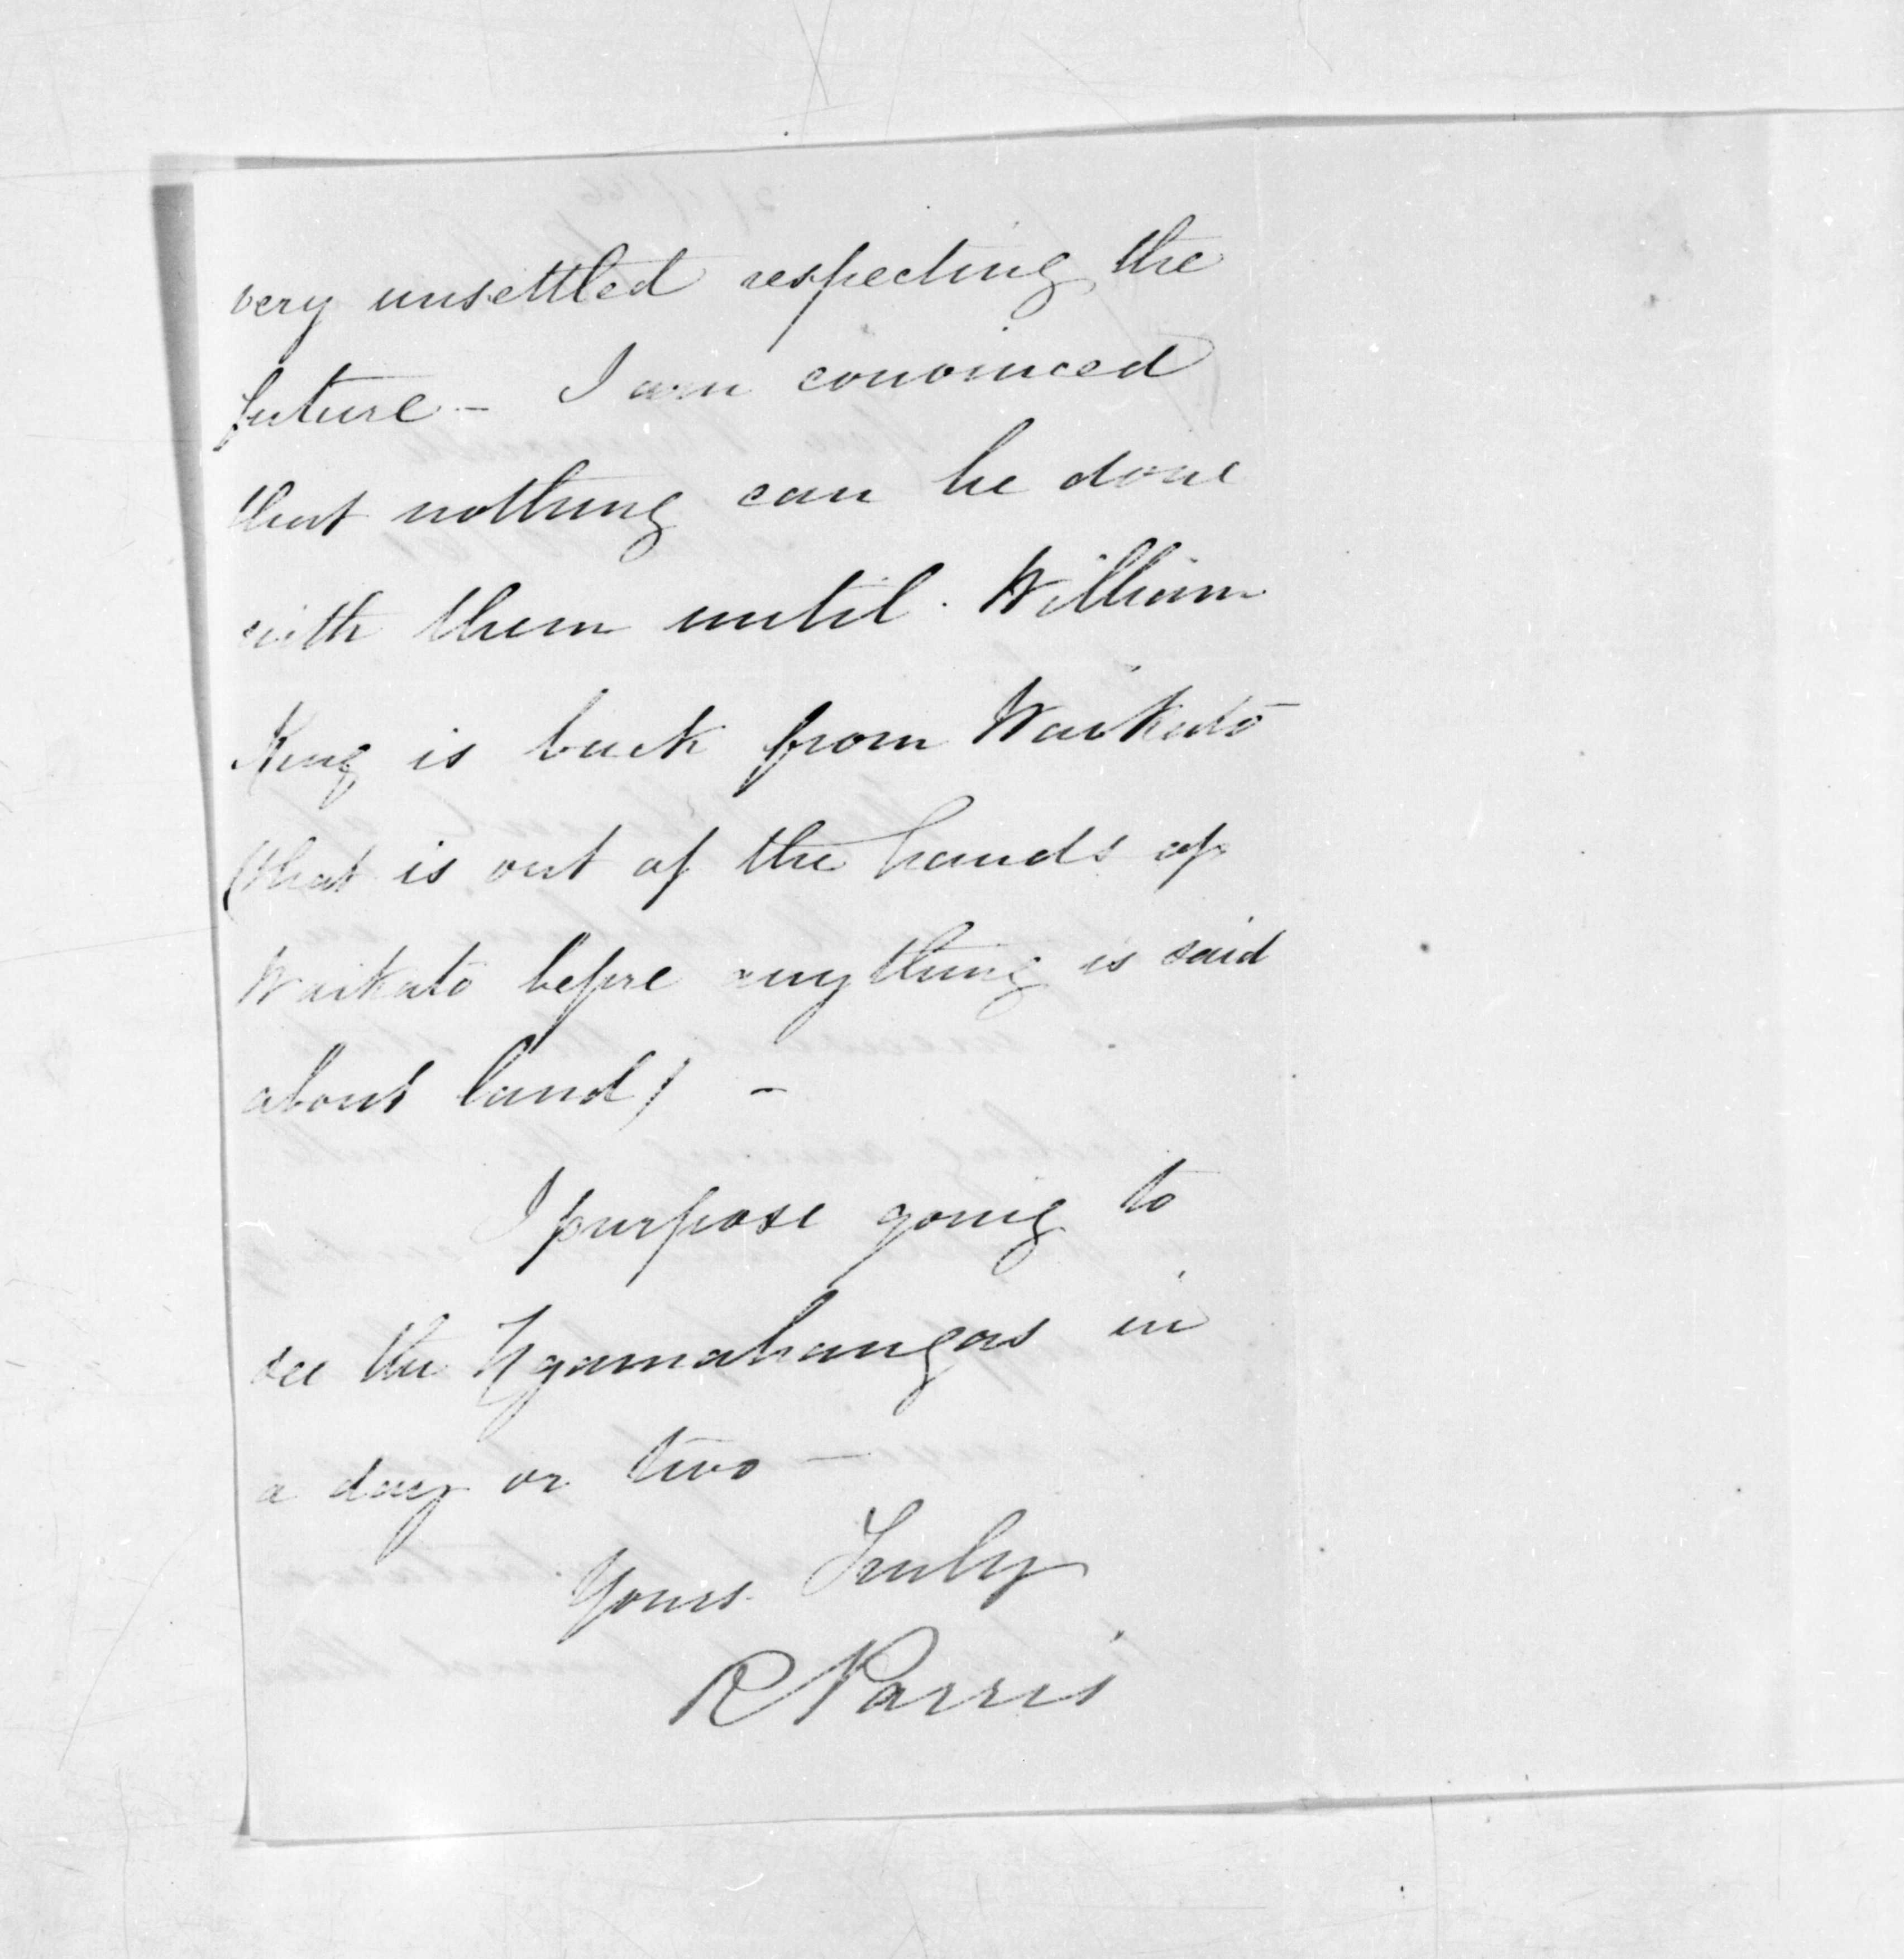 very unsettled respecting the
future – I am convinced
that nothing can be done
with them until William
King is back from Waikato
(that is out of the hands of
Waikato before anything is said
about land) –
I purpose going to
see the Ngamahangas in
a day or two –
Yours Truly
R Parris